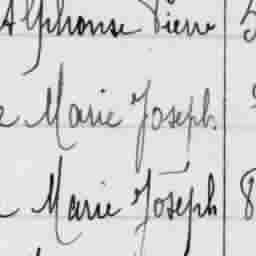 Alphonse Pierre 5
e Marie Joseph.
Marie Joseph 8